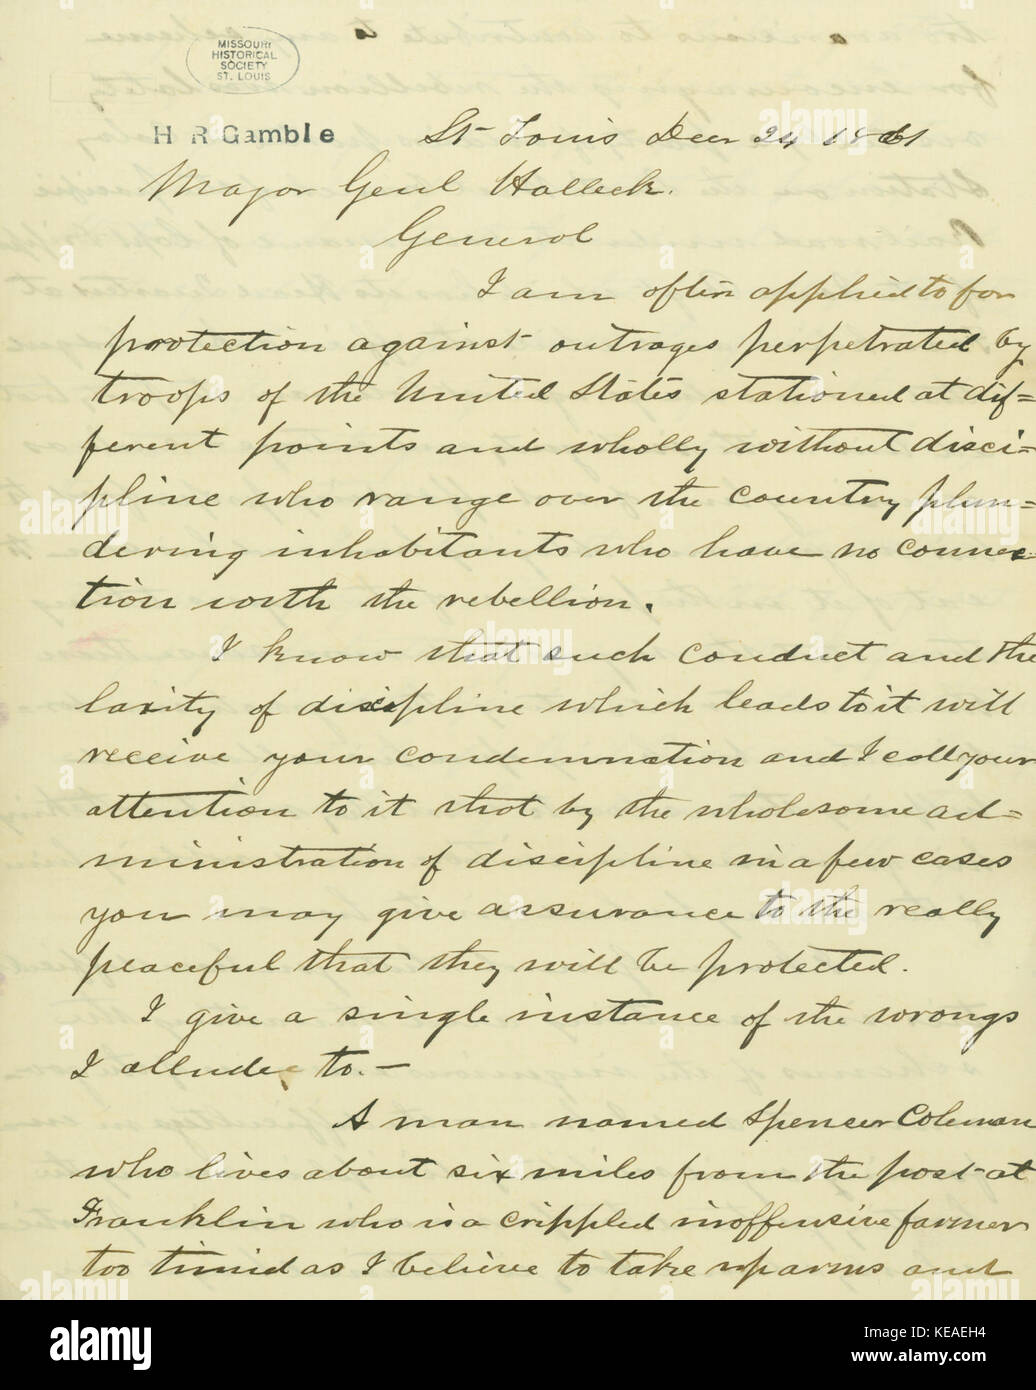 MISSOURI
HISTORICAL
SOCIETY
ST. LOUIS
H R Gamble
St Louis Decr 24 1861
Major Genl Halleck.
General
I am often applied to for
protection against outrages perpetrated by
troops of the United States stationed at dif=
ferent points and wholly without disci=
pline who range over the country plun=
dering inhabitants who have no connec
tion with the rebellion.
I know that such conduct and the
laxity of discipline which leads to it will
receive your condemnation and I call your
attention to it that by the wholesome ad=
ministration of discipline in a few cases
you may give assurance to the really
peaceful that they will be protected.
I give a single instance of the wrongs
I allude to.—
A man named Spencer Coleman
who lives about six miles from the post at
Franklin who is a crippled inoffensive farmer
too timid as I believe to take up arms and
alamy
Image ID: KEAEH4
www.alamy.com